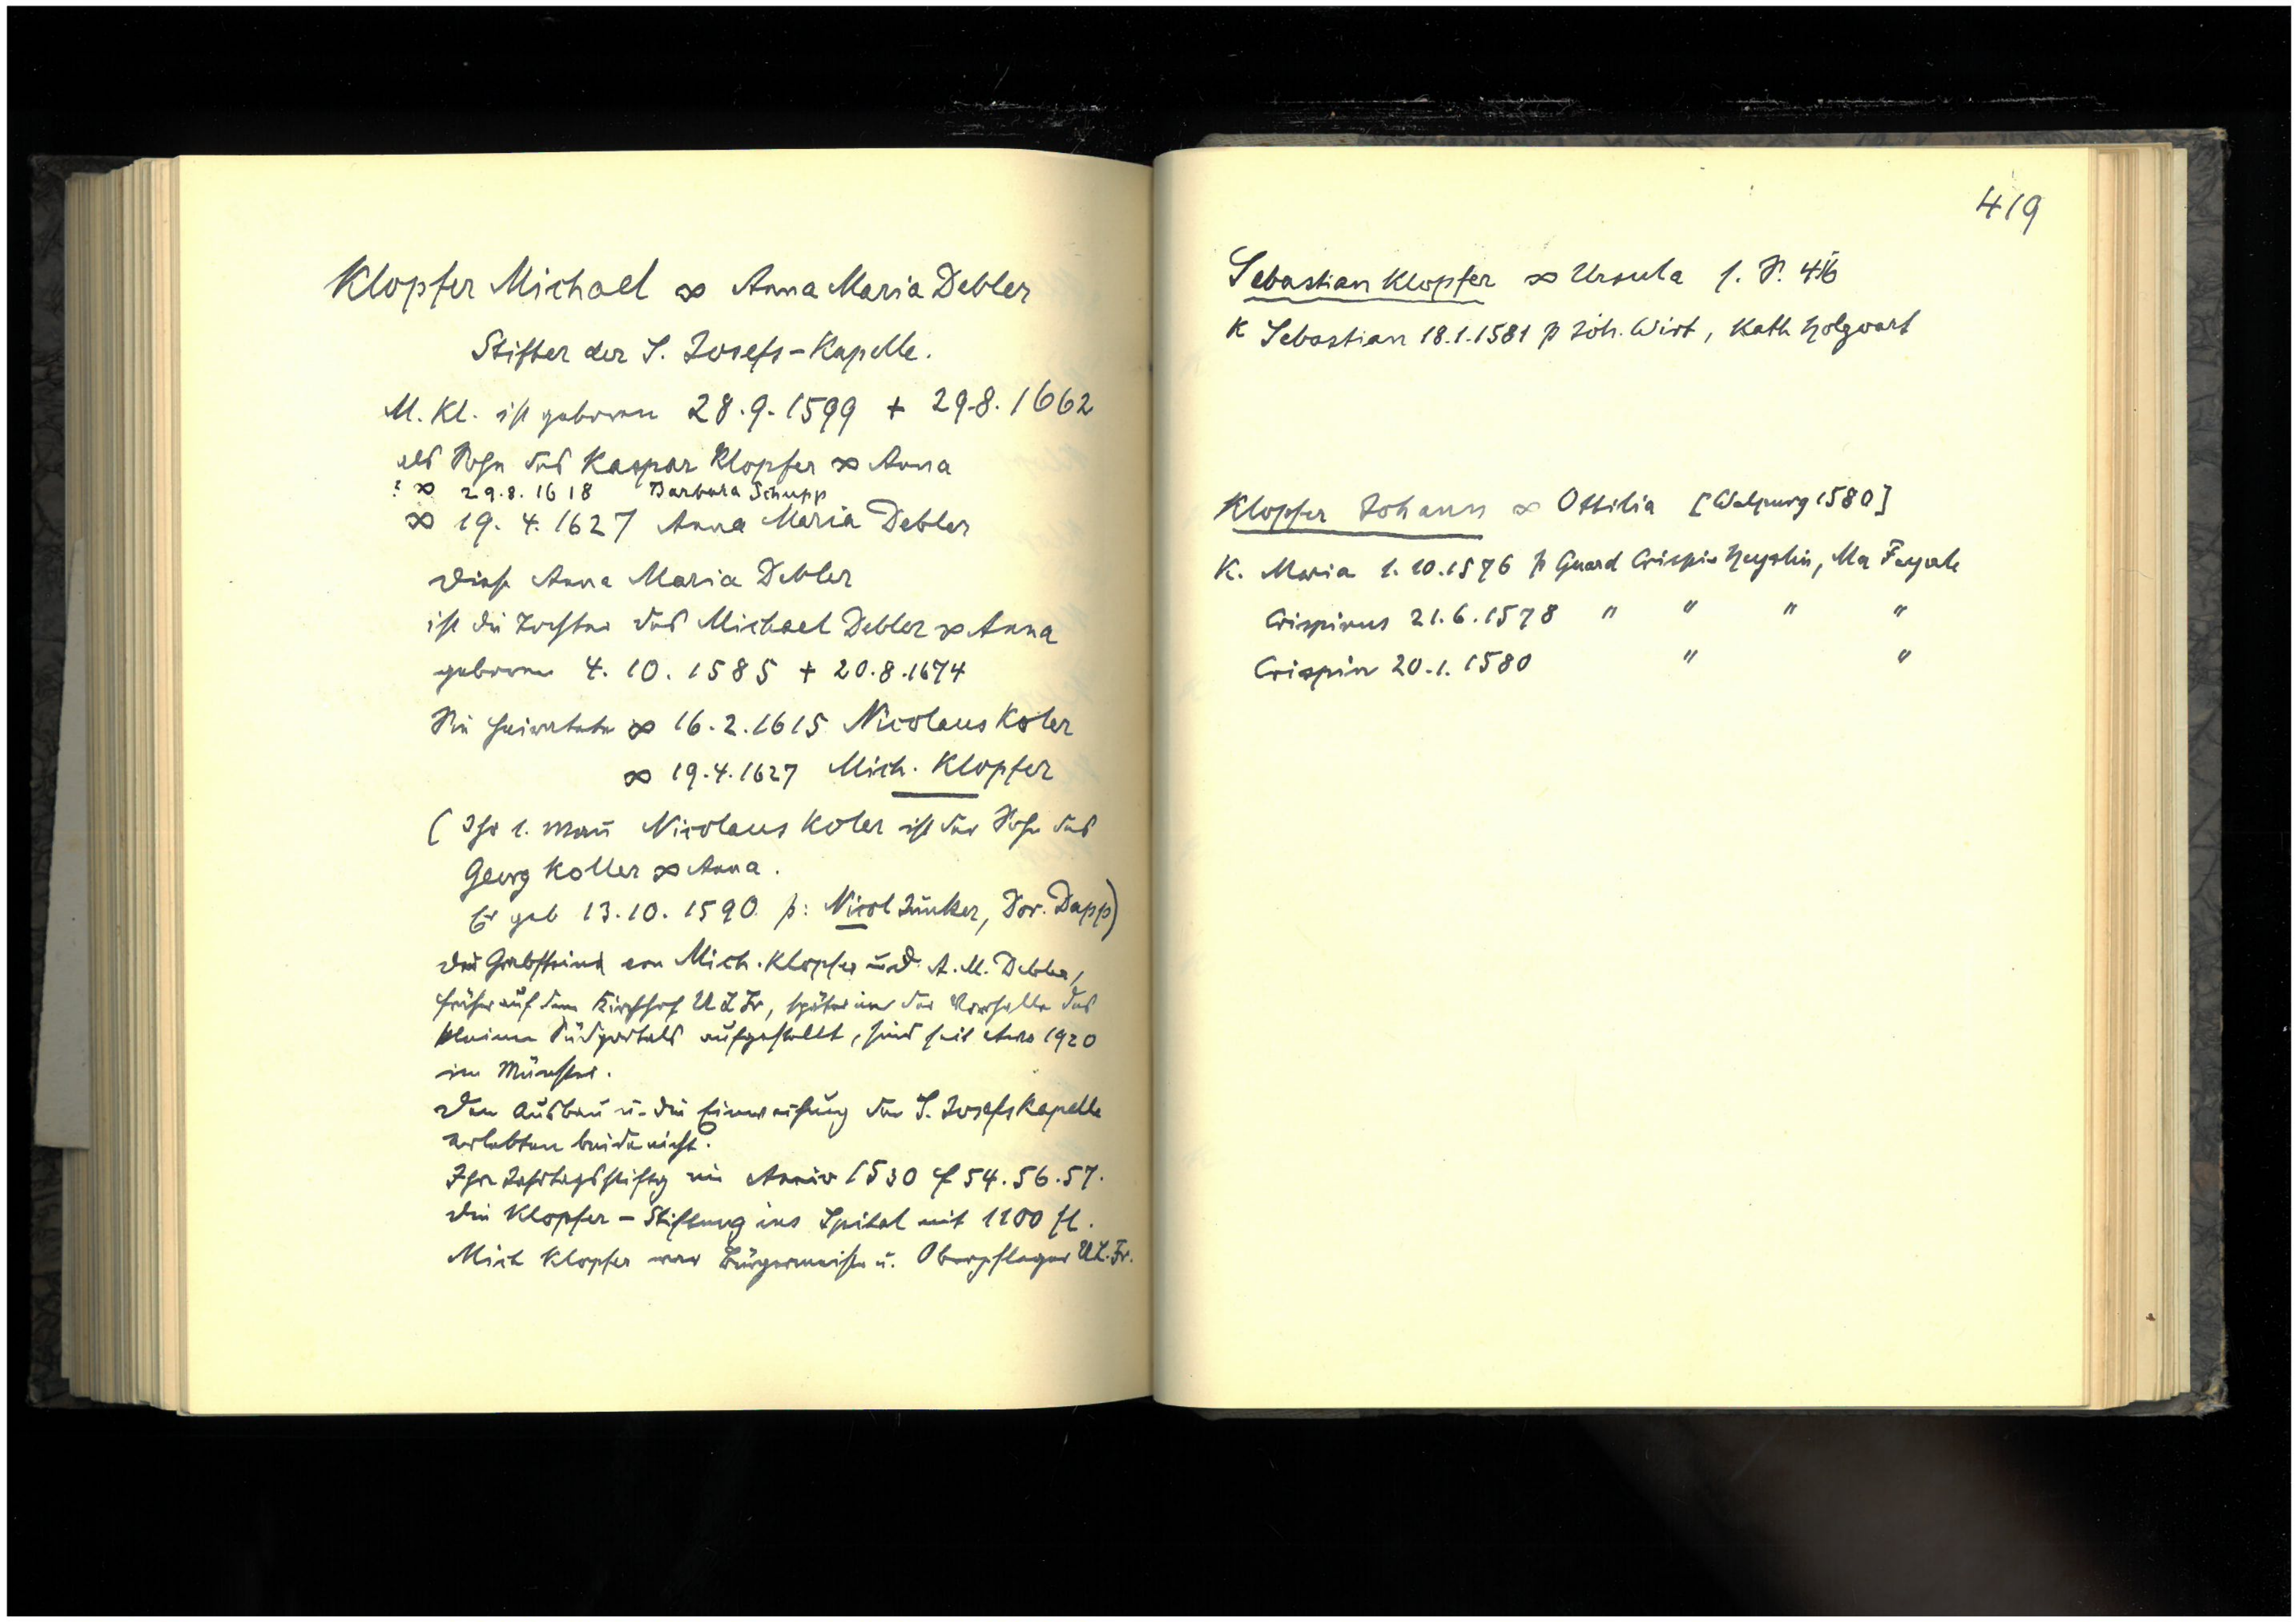 Klopfer Michael ∞ Anna Maria Debler
Stifter der S. Josefs-Kapelle.
M. Kl. ist geboren 28.9.1599 + 29.8.1662
als Sohn des Kaspar Klopfer ∞ Anna
: ∞ 29.8.1618 Barbara Schupp
∞ 19.4.1627 Anna Maria Debler
Diese Anna Maria Debler
ist die Tochter des Michael Debler ∞ Anna
geboren 4.10.1585 + 20.8.1674
Sie heiratete ∞ 16.2.1615 Nicolaus Koler
∞ 19.4.1627 Mich. Klopfer
(Ihr 1. Mañ Nicolaus Koler ist der Sohn des
Georg Koller ∞ Anna.
Er geb 13.10.1590 p: Nicol Junker, Dor. Dapp)
Die Grabsteine von Mich. Klopfer und A. M. Debler,
früher auf dem Kirchhof U L Fr, später in der Vorhalle des
kleinen Südportals aufgestellt, sind seit etwa 1920
im Münster.
Den Ausbau u. die Einweihung der S. Josefskapelle
erlebten beide nicht.
Ihre Jahrtagsstiftg im Anniv 1530 f 54.56.57.
Die Klopfer-Stiftung ins Spital mit 1100 fl.
Mich Klopfer war Bürgermeister u. Oberpfleger U.L.Fr.
419
Sebastian Klopfer ∞ Ursula s. S.
K Sebastian 18.1.1581 p Joh. Wirt, Kath Holzwart
Klopfer Johann ∞ Ottilia [Walpurg 1580]
K. Maria 1.10.1576 p Crispin, Ma
Crispinus 21.6.1578 " " " "
Crispin 20.1.1580 " "